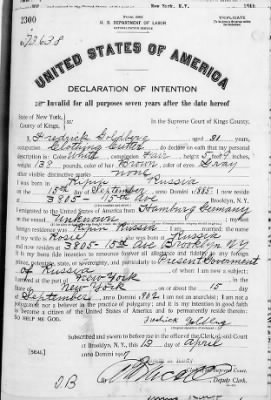 New York, N. Y.
2300
U. S. DEPARTMENT OF LABOR
TRIPLICATE
UNITED STATES OF AMERICA
DECLARATION OF INTENTION
Invalid for all purposes seven years after the date hereof
State of New York,
County of Kings,
In the Supreme Court of Kings County.
I, Fredrick Goldberg aged 31 years,
occupation Clothing Cutter do declare on oath that my personal
description is: Color White complexion Fair height 5 feet inches,
weight 139 pounds, color of hair Brown color of eyes Gray
other visible distinctive marks none
I was born in Russia
on the 15th day of September anno Domini 1885 I now reside
at 3805 - 15th Ave Brooklyn, N.Y.
I emigrated to the United States of America from Hamburg Germany
on the vessel Unknown
foreign residence was Russia I am married; the name
of my wife is Rosie Russia
and now resides at 3805-15th Ave Brooklyn NY
It is my bona fide intention to renounce forever all allegiance and fidelity to any foreign
prince, potentate, state, or sovereignty, and particularly to Present Government
of Russia of whom I am now a subject;
I arrived at the port of New York in the
State of New York on or about the 15 day
of September anno Domini I am not an anarchist; I am not a
polygamist nor a believer in the practice of polygamy; and it is my intention in good faith
to become a citizen of the United States of America and to permanently reside therein:
SO HELP ME GOD.
Subscribed and sworn to before me in the office of the Clerk of said Court
at Brooklyn, N.Y., this 13 day of April
[SEAL]
anno Domini 1917
Deputy Clerk.